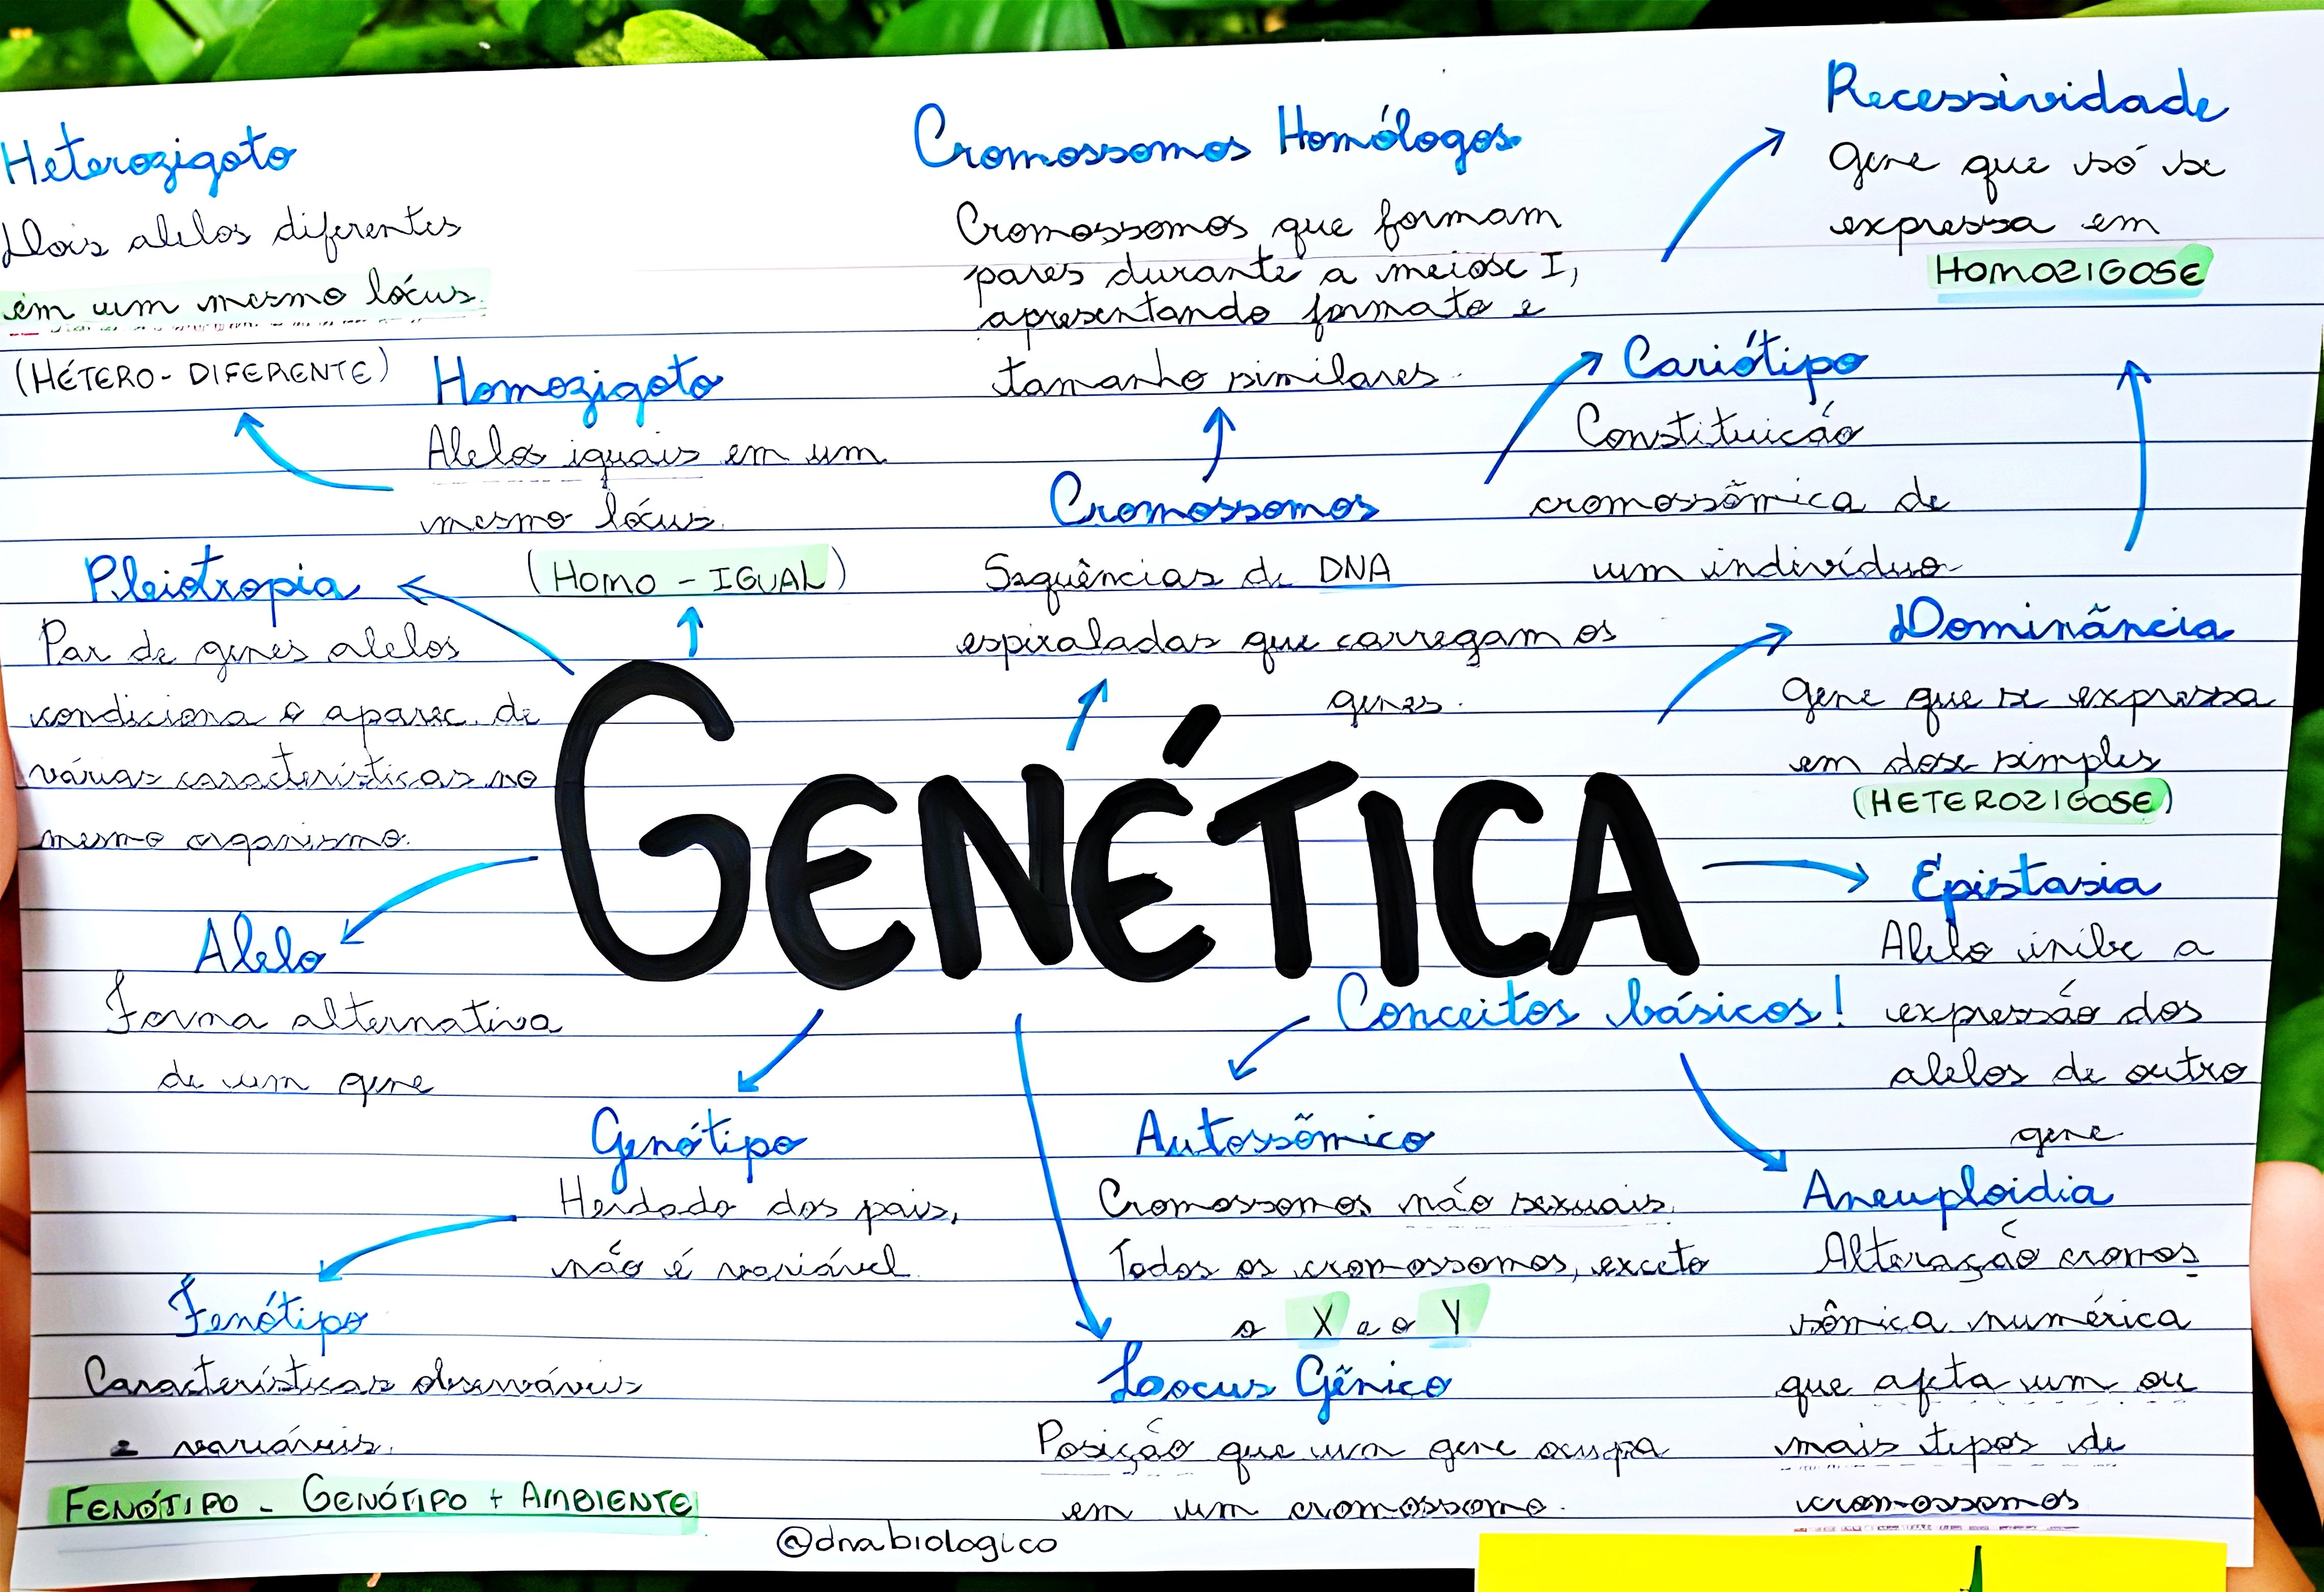 Heterozigoto
Dois alelos diferentes
em um mesmo lócus.
(HÉTERO - DIFERENTE)
Homozigoto
Alelos iguais em um
mesmo lócus.
(HOMO - IGUAL)
Cromossomos Homólogos
Cromossomos que formam
pares durante a meiose I,
apresentando formato e
tamanho similares.
Recessividade
gene que só se
expressa em
HOMOZIGOSE
Cariótipo
Constituicão
cromossômica de
um indivíduo
Cromossomos
Sequências de DNA
espiraladas que carregam os
genes.
Pleiotropia
Par de genes alelos
condiciona o aparec. de
várias características no
mesmo organismo.
Dominância
gene que se expressa
em dose simples
(HETEROZIGOSE)
GENÉTICA
Conceitos básicos!
Epistasia
Alelo inibe a
expressão dos
alelos de outro
gene
Alelo
Forma alternativa
de um gene
Genótipo
Herdado dos pais,
não é variável.
Fenótipo
Características observáveis
e variáveis.
FENÓTIPO - GENÓTIPO + AMBIENTE
Autossômico
Cromossomos não sexuais.
Todos os cromossomos, exceto
o X e o Y
Locus Gênico
Posição que um gene ocupa
em um cromossomo.
Aneuploidia
Alteração cromos
sômica numérica
que afeta um ou
mais tipos de
cromossomos
@dnabiologico